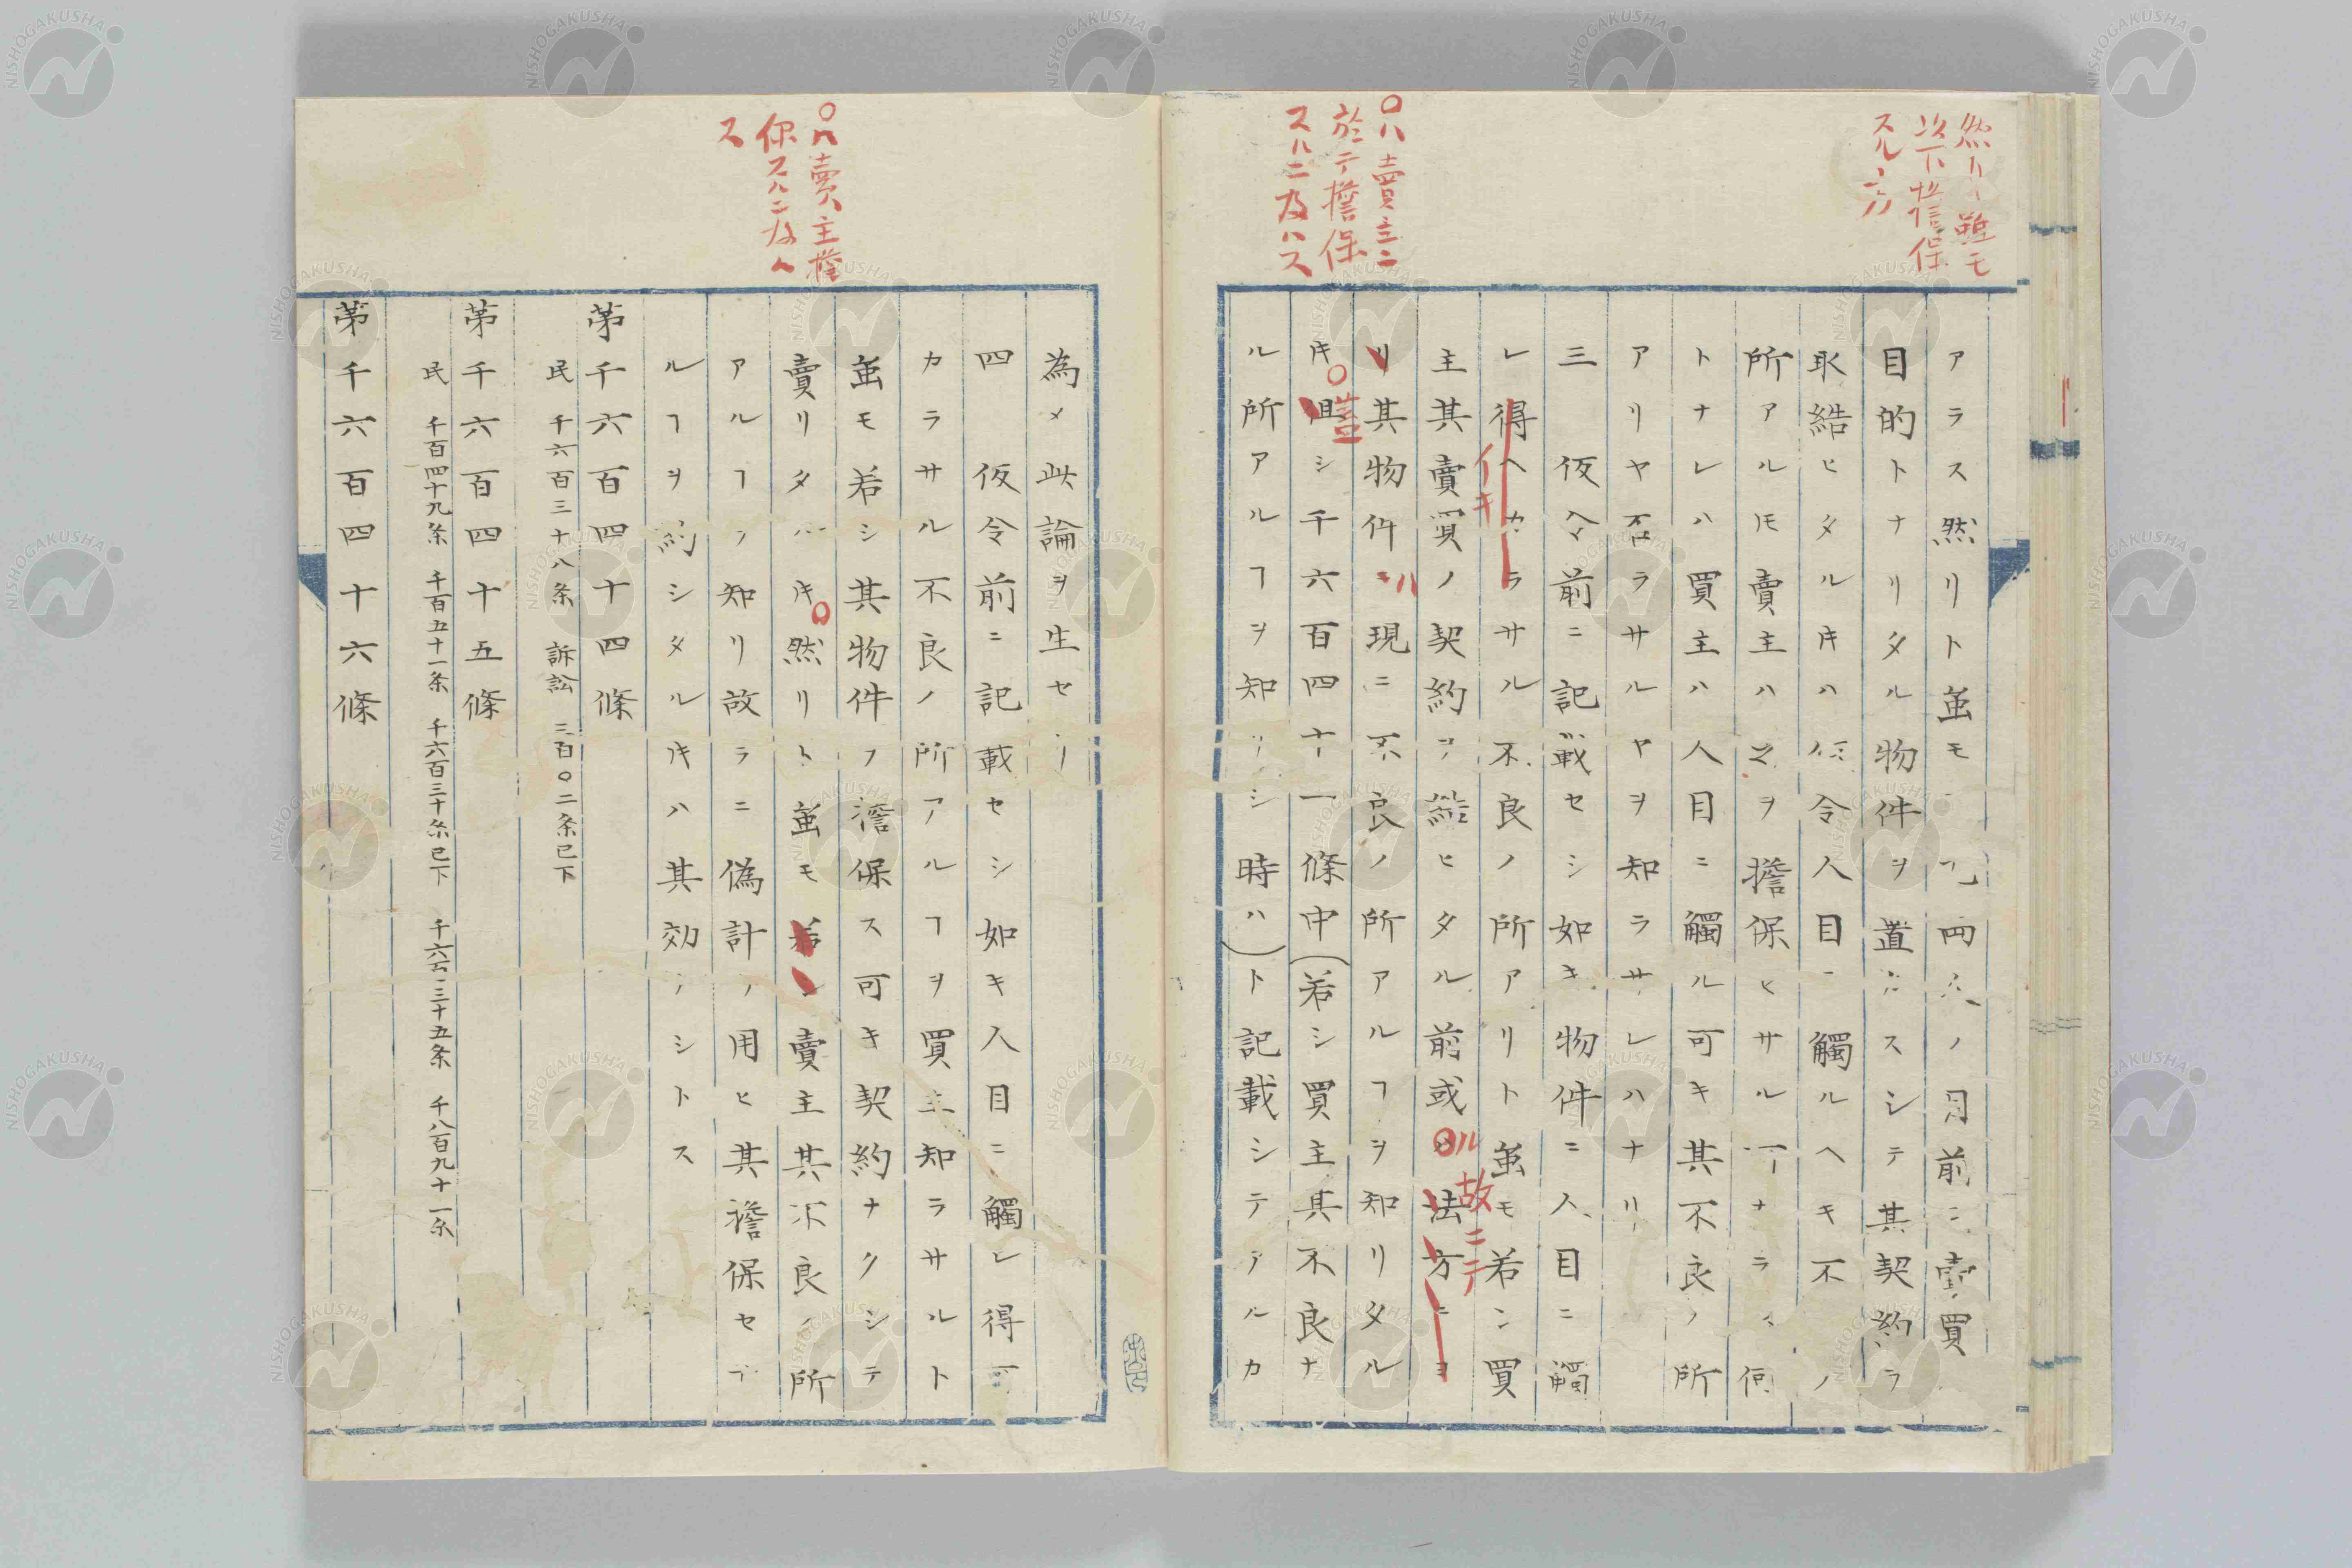 然リト雖モ
以下担保
スルニハ
アラス然リト虽モ両人ノ目前ニ賣買
目的トナリタル物件ヲ置カスシテ其契約ヲ
取結ヒタルキハ仮令人目ニ觸ルヘキ不良ノ
所アルモ賣主ハ之ヲ擔保ヒサルナラス何
トナレハ買主ハ人目ニ觸ル可キ其不良ノ所
アリヤ否ラサルヤヲ知ラサレハナリ
三 仮令前ニ記載セシ如キ物件ニ人目ニ觸
レ得ヘカラサル不良ノ所アリト虽モ若シ買
イキ
主其賣買ノ契約ヲ結ヒタル前或ハ法方ニヨ
〇ル故ニテ
リ其物件ニハ現ニ不良ノ所アルヿヲ知リタル
〇ハ賣主ニ
於テ擔保
スルニ及ハス
キ但シ千六百四十一條中(若シ買主其不良ナ
〇蓋
ル所アルヿヲ知リシ時ハ)ト記載シテアルカ
為メ此論ヲ生セリ
四 仮令前ニ記載セシ如キ人目ニ觸レ得可
カラサル不良ノ所アルヿヲ買主知ラサルト
虽モ若シ其物件ヲ擔保ス可キ契約ナクシテ
〇ハ賣主擔
保スルニ及ハ
ス
賣リタルキ〇然リト虽モ若シ賣主其不良ノ所
アルヿヲ知リ故ラニ偽計ヲ用ヒ其擔保セザ
ルヿヲ約シタルキハ其効ナシトス
苐千六百四十四條
民 千六百三十八条 訴訟 三百〇二条已下
苐千六百四十五條
民 千百四十九条 千百五十一条 千六百三十条已下 千六百三十五条 千八百九十一条
苐千六百四十六條
NISHOGAKUSHA